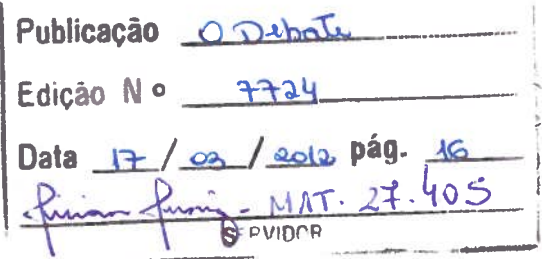 Publicação O Debate
Edição Nº 7724
Data 17 / 03 / 2012 pág. 16
- MAT. 27.405
SERVIDOR